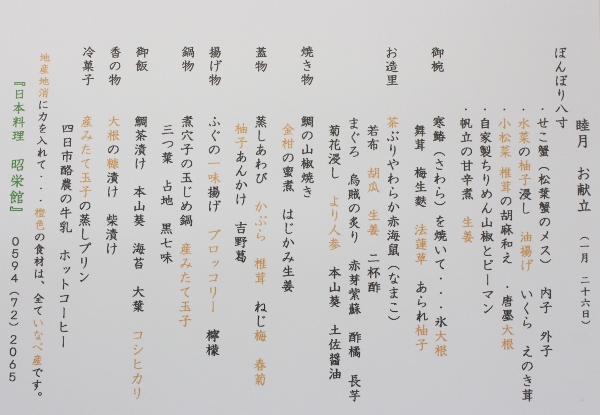 睦月　お献立　（一月　二十六日）
ぼんぼり八寸
・せこ蟹（松葉蟹のメス）　内子　外子
・水菜の柚子浸し　油揚げ　いくら　えのき茸
・小松菜　椎茸の胡麻和え　・唐墨大根
・自家製ちりめん山椒とピーマン
・帆立の甘辛煮　生姜
御椀　寒鰆（さわら）を焼いて・・・氷大根
舞茸　梅生麩　法蓮草　あられ柚子
お造里　茶ぶりやわらか赤海鼠（なまこ）
若布　胡瓜　生姜　二杯酢
まぐろ　烏賊の炙り　赤芽紫蘇　酢橘　長芋
菊花浸し　より人参　本山葵　土佐醤油
焼き物　鯛の山椒焼き
金柑の蜜煮　はじかみ生姜
蓋物　蒸しあわび　かぶら　椎茸　ねじ梅　春菊
柚子あんかけ　吉野葛
揚げ物　ふぐの一味揚げ　ブロッコリー　檸檬
鍋物　煮穴子の玉じめ鍋　産みたて玉子
三つ葉　占地　黒七味
御飯　鯛茶漬け　本山葵　海苔　大葉　コシヒカリ
香の物　大根の糠漬け　柴漬け
冷菓子　産みたて玉子の蒸しプリン
四日市酪農の牛乳　ホットコーヒー
地産地消に力を入れて・・・橙色の食材は、全ていなべ産です。
『日本料理　昭栄館』　０５９４（７２）２０６５